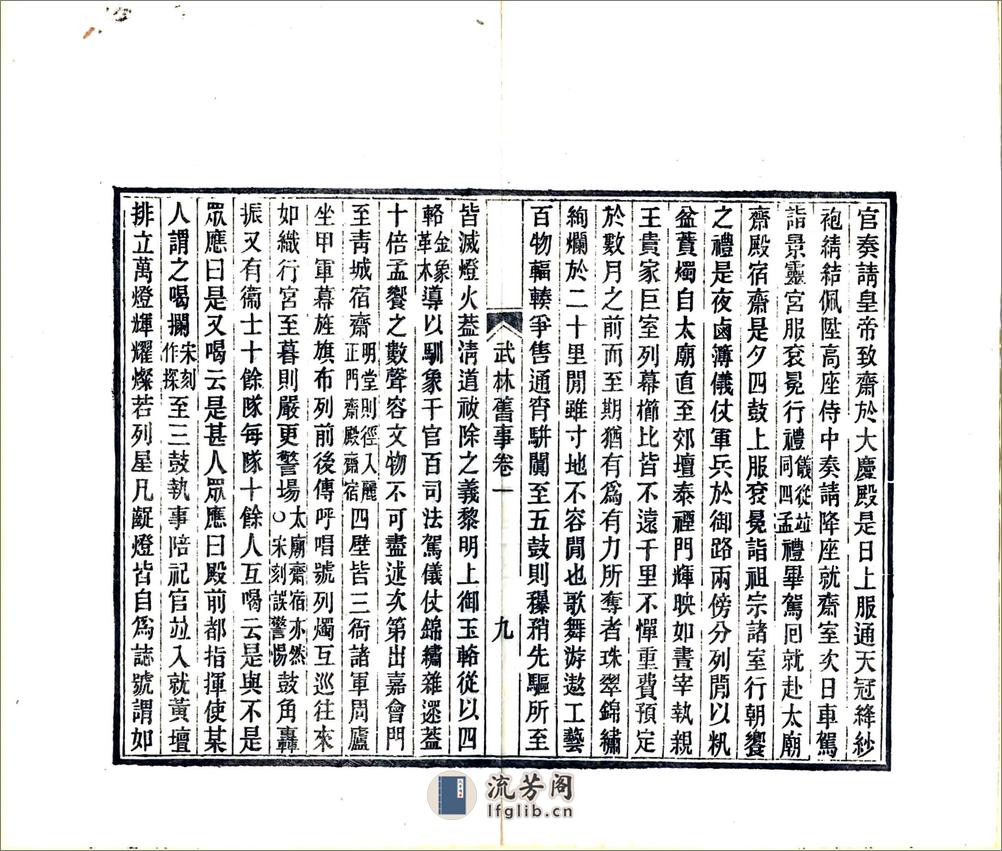 官奏請皇帝致齋於大慶殿是日上服通天冠絳紗
袍綪結佩陞高座侍中奏請降座就齋室次日車駕
詣景靈宮服袞冕行禮儀從竝同四孟禮畢駕囘就赴太廟
齋殿宿齋是夕四鼓上服袞冕詣祖宗諸室行朝饗
之禮是夜鹵簿儀仗軍兵於御路兩傍分列閒以籸
盆䕷燭自太廟直至郊壇泰禋門輝映如晝宰執親
王貴家巨室列幕櫛比皆不遠千里不憚重費預定
於數月之前而至期猶有爲有力所奪者珠翠錦繡
絢爛於二十里閒雖寸地不容閒也歌舞游遨工藝
百物輻輳爭售通宵駢闐至五鼓則䅽矟先驅所至
武林舊事卷一
九
皆滅燈火葢清道祓除之義黎明上御玉輅從以四
輅金象革木導以馴象千官百司法駕儀仗錦繡雜遝葢
十倍孟饗之數聲容文物不可盡述次第出嘉會門
至靑城宿齋明堂則徑入麗正門齋殿齋宿四壁皆三衙諸軍周廬
坐甲軍幕旌旗布列前後傳呼唱號列燭互巡往來
如織行宮至暮則嚴更警場太廟齋宿亦然○宋刻誤警惕鼓角轟
振又有衞士十餘隊每隊十餘人互喝云是與不是
眾應曰是又喝云是甚人眾應曰殿前都指揮使某
人謂之喝攔宋刻作探至三鼓執事陪祀官竝入就黃壇
排立萬燈輝耀燦若列星凡龊燈皆自爲誌號謂如
流芳阁
lfglib.cn